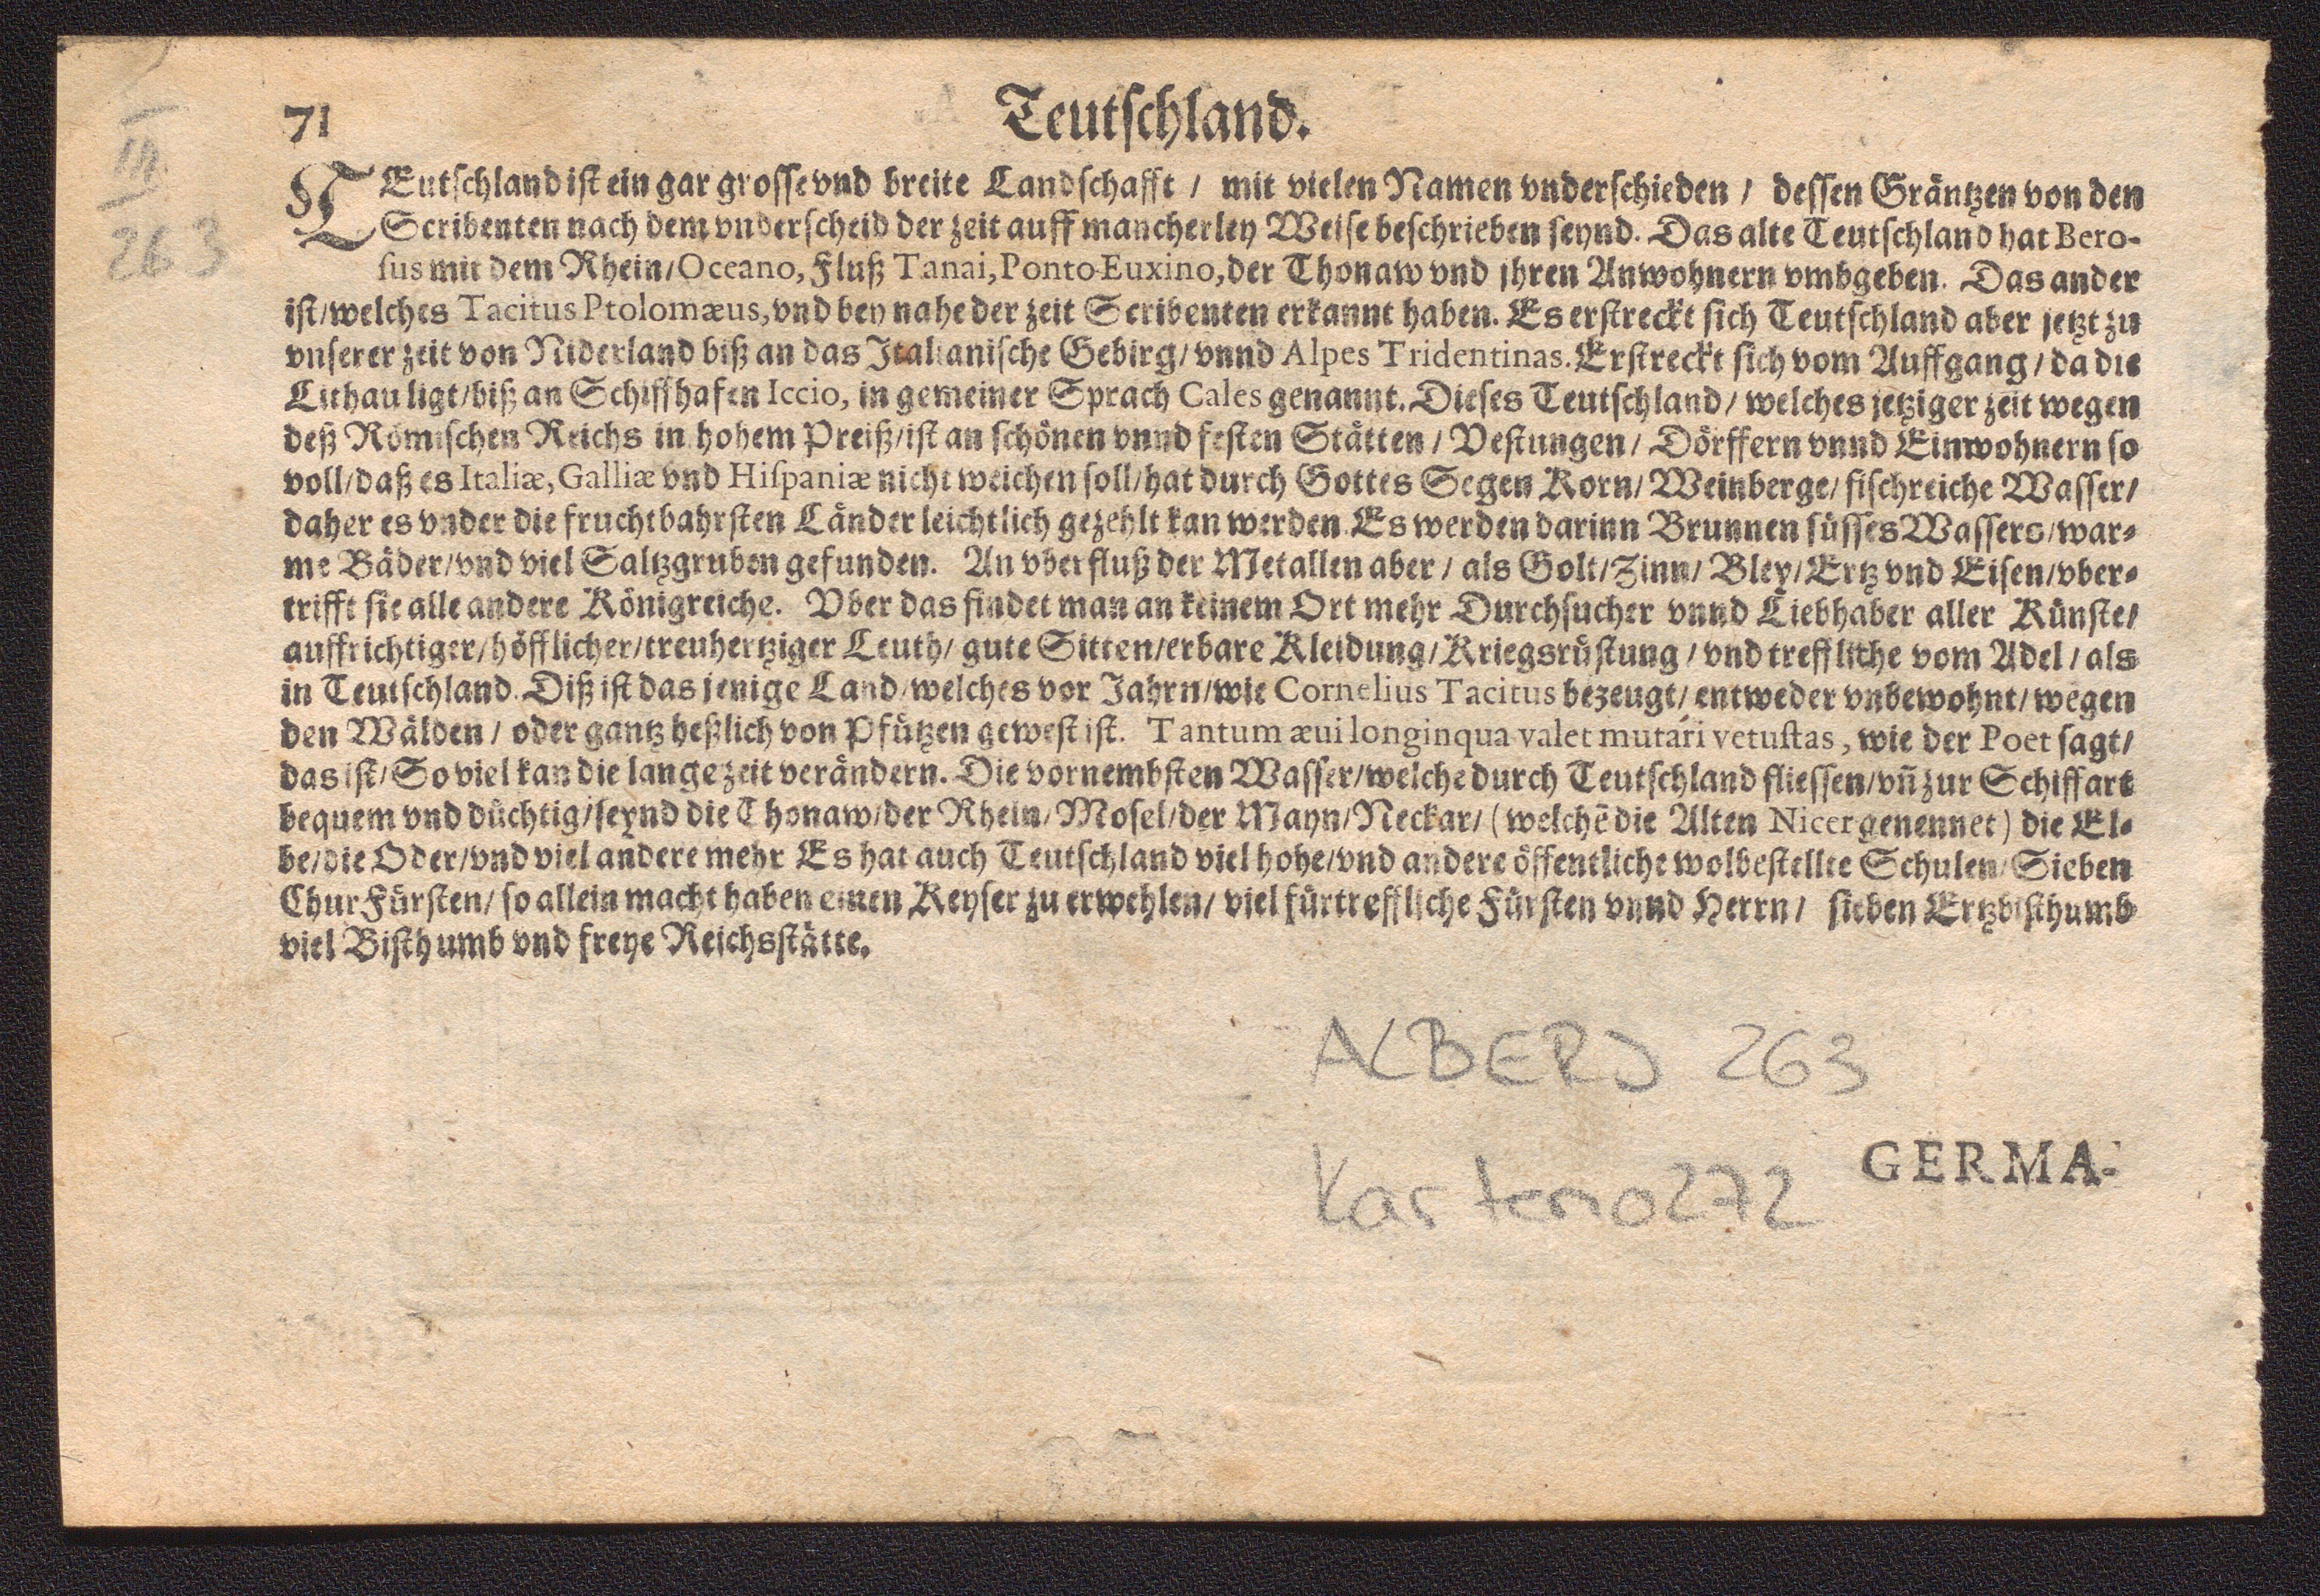 III
263
71
Teutschland.
TEutschland ist ein gar grosse vnd breite Landschafft / mit vielen Namen vnderschieden / dessen Gräntzen von den
Scribenten nach dem vnderscheid der zeit auff mancherley Weise beschrieben seynd. Das alte Teutschland hat Bero-
sus mit dem Rhein/Oceano, Fluß Tanai, Ponto-Euxino, der Thonaw vnd jhren Anwohnern vmbgeben. Das ander
ist/welches Tacitus Ptolomæus, vnd bey nahe der zeit Scribenten erkannt haben. Es erstreckt sich Teutschland aber jetzt zu
vnserer zeit von Niderland biß an das Italianische Gebirg/ vnnd Alpes Tridentinas. Erstreckt sich vom Auffgang / da die
Lithau ligt/biß an Schiffhafen Iccio, in gemeiner Sprach Cales genannt. Dieses Teutschland / welches jetziger zeit wegen
deß Römischen Reichs in hohem Preiß/ist an schönen vnnd festen Stätten / Vestungen / Dörffern vnnd Einwohnern so
voll/daß es Italiæ, Galliæ vnd Hispaniæ nicht weichen soll/hat durch Gottes Segen Korn/ Weinberge/ fischreiche Wasser/
daher es vnder die fruchtbahrsten Länder leichtlich gezehlt kan werden. Es werden darinn Brunnen süsses Wassers/war-
me Bäder/vnd viel Saltzgruben gefunden. An vberfluß der Metallen aber / als Golt/Zinn/ Bley/Ertz vnd Eisen/vber-
trifft sie alle andere Königreiche. Vber das findet man an keinem Ort mehr Durchsucher vnnd Liebhaber aller Künste/
auffrichtiger/höfflicher/treuhertziger Leuth/ gute Sitten/erbare Kleidung/Kriegsrüstung / vnd trefflithe vom Adel / als
in Teutschland. Diß ist das jenige Land/welches vor Jahrn/wie Cornelius Tacitus bezeugt/ entweder vnbewohnt/ wegen
den Wälden / oder gantz heßlich von Pfützen gewest ist. Tantum æui longinqua valet mutari vetustas, wie der Poet sagt/
das ist/So viel kan die lange zeit verändern. Die vornembsten Wasser/welche durch Teutschland fliessen/vñ zur Schiffart
bequem vnd düchtig/seynd die Thonaw/der Rhein/Mosel/der Mayn/Neckar/ (welchē die Alten Nicer genennet) die El-
be/die Oder/vnd viel andere mehr Es hat auch Teutschland viel hohe/vnd andere öffentliche wolbestellte Schulen/Sieben
ChurFürsten/ so allein macht haben einen Keyser zu erwehlen/ viel fürtreffliche Fürsten vnnd Herrn / sieben Ertzbisthumb
viel Bisthumb vnd freye Reichsstätte.
ALBERJ 263
Karteno272
GERMA-